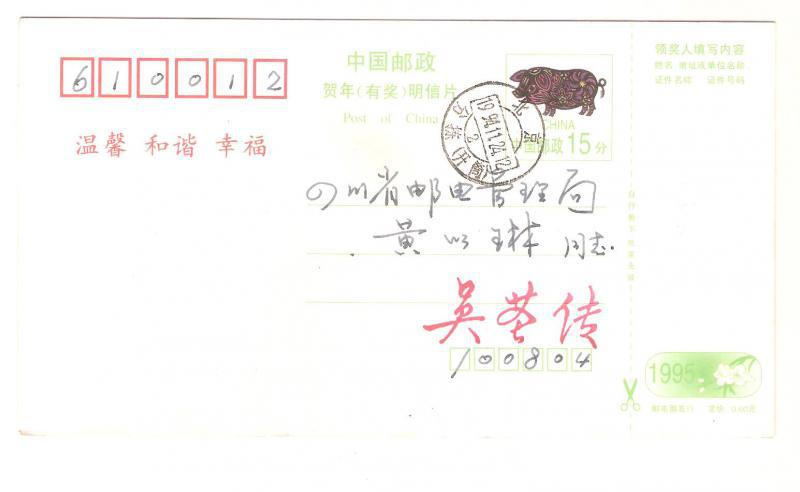 610012
中国邮政
贺年(有奖)明信片
Post of China
温馨 和谐 幸福
北京
1994.11.24.12
CHINA
中国邮政 15分
领奖人填写内容
姓名 地址或单位名称
证件名称 证件号码
四川省邮电管理局
黄以琳 同志.
吴苤传
100804
1995
邮电部发行 定价:0.60元